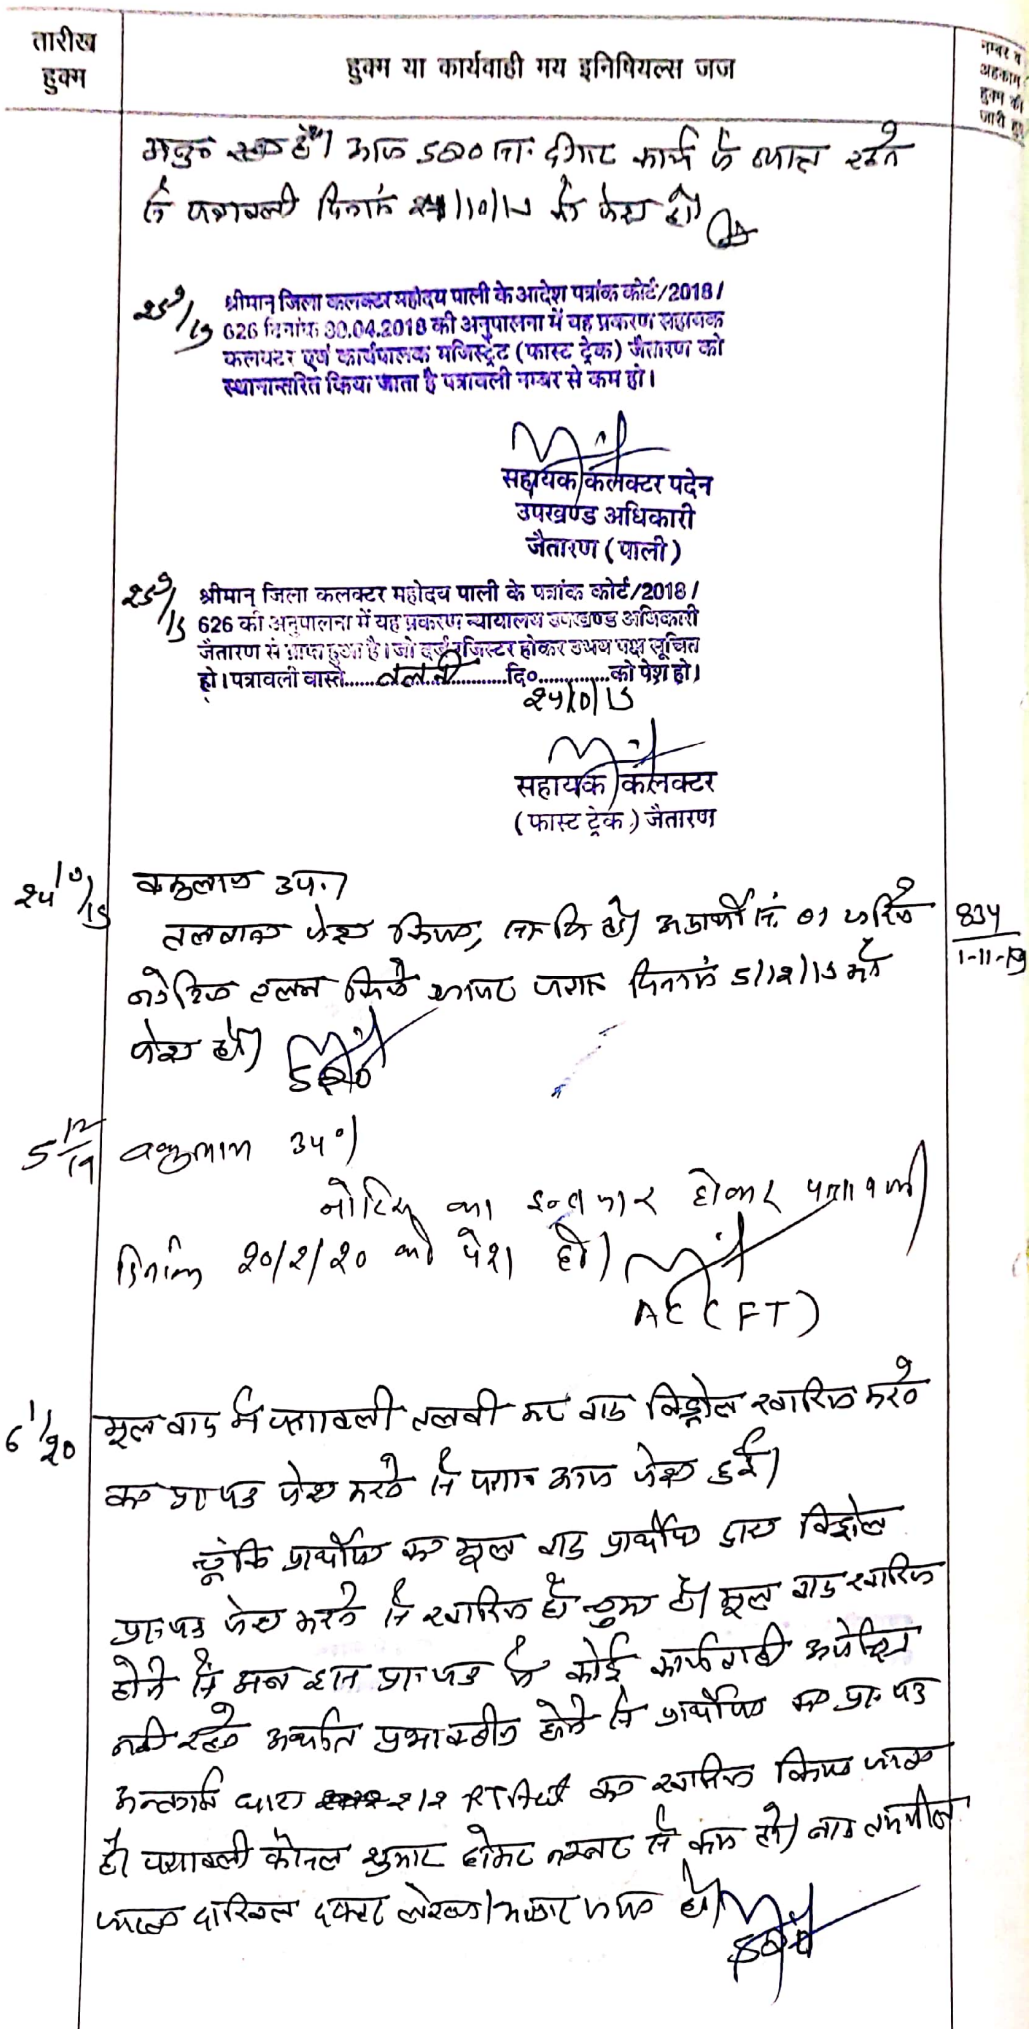 तारीख
हुक्म
हुक्म या कार्यवाही मय इनिषियल्स जज
नम्बर व
अहकाम
हुक्म की
जारी हुए
आज SDO कार्य में व्यस्त रहने
से पत्रावली दिनांक 24/10/19 को पेश हो।
25/9/19
श्रीमान् जिला कलक्टर महोदय पाली के आदेश पत्रांक कोर्ट/2018/
626 दिनांक 30.04.2018 की अनुपालना में यह प्रकरण सहायक
कलक्टर एवं कार्यपालक मजिस्ट्रेट (फास्ट ट्रेक) जैतारण को
स्थानान्तरित किया जाता है पत्रावली नम्बर से कम हो।
सहायक कलक्टर पदेन
उपखण्ड अधिकारी
जैतारण (पाली)
25/9/19
श्रीमान् जिला कलक्टर महोदय पाली के पत्रांक कोर्ट/2018/
626 की अनुपालना में यह प्रकरण न्यायालय उपखण्ड अधिकारी
जैतारण से प्राप्त हुआ है। जो दर्ज रजिस्टर होकर उभय पक्ष सूचित
हो। पत्रावली वास्ते.....तलबी.....दि०............को पेश हो।
24/10/19
सहायक कलक्टर
(फास्ट ट्रेक) जैतारण
24/10/19
वकुलाय उप.।
तलबाना पेश किया, अप्रार्थी सं. 01 जरिये
नोटिस तलब किये जाकर पत्रा० दिनांक 5/12/19 को
पेश हो।
SDO
834
1-11-19
5/12/19
वकुलाय उप०।
नोटिस का इन्तजार होकर पत्रावली
दिनांक 20/2/20 को पेश हो।
AC (FT)
6/1/20
मूल वाद में पत्रावली तलबी कर वाद विड्रोल खारिज करने
का प्रा० पत्र पेश करने से पत्रा० आज पेश हुई।
चूंकि प्रार्थीया का मूल वाद प्रार्थीया द्वारा विड्रोल
प्रा० पत्र पेश करने से खारिज हो चुका है। मूल वाद खारिज
होने से अब इस प्रा० पत्र में कोई कार्यवाही अपेक्षित
नहीं रहने अर्थात प्रभावहीन होने से प्रार्थीया का प्रा० पत्र
अन्तर्गत धारा 212 RTAct का खारिज किया जाता
है। पत्रावली फैसल शुमार होकर नम्बर से कम हो। बाद तकमील
दाखिल दफ्तर हो।